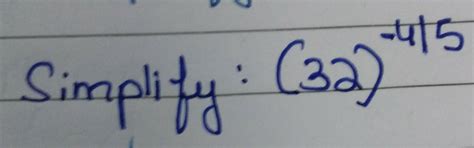 Simplify: (32)^-4/5